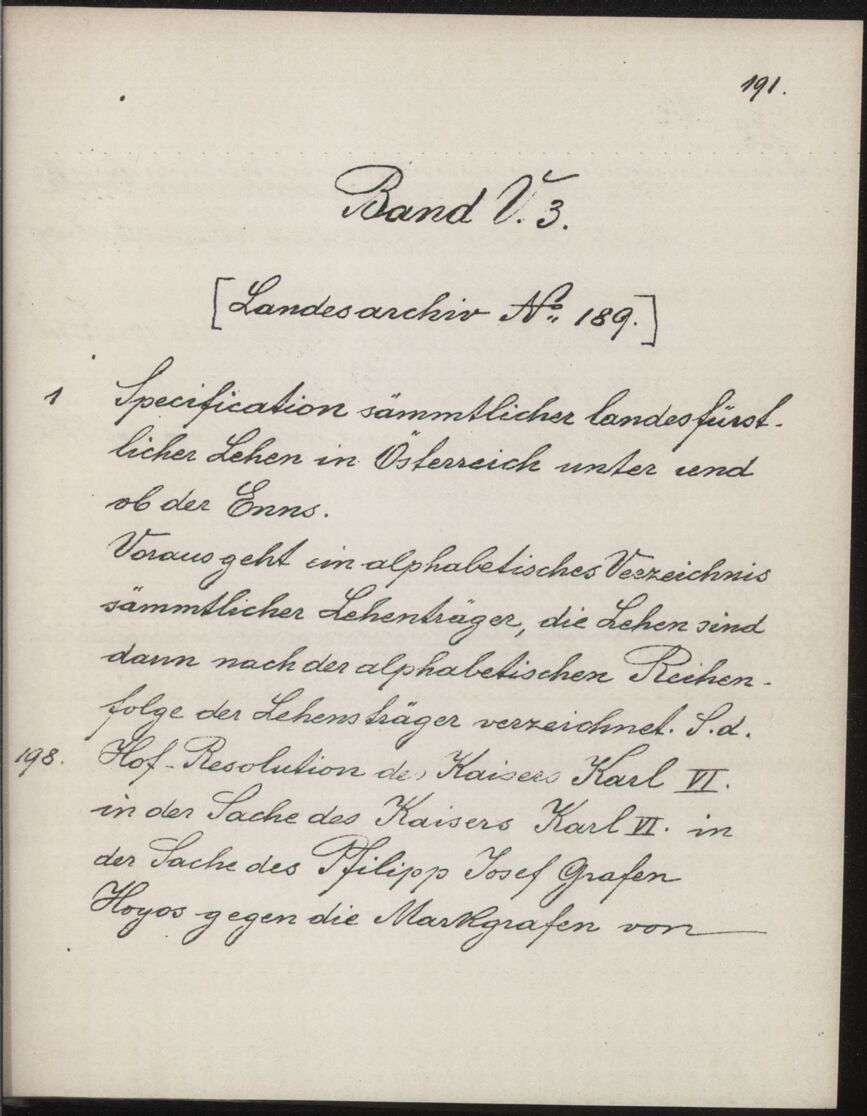 191.
Band V. 3.
[Landesarchiv No. 189.]
1 Specification sämmtlicher landesfürst-
licher Lehen in Österreich unter und
ob der Enns.
Vorausgeht ein alphabetisches Verzeichnis
sämmtlicher Lehenträger, die Lehen sind
dann nach der alphabetischen Reihen-
folge der Lehensträger verzeichnet. S.d.
198. Hof-Resolution des Kaisers Karl VI.
in der Sache des Kaisers Karl VI. in
der Sache des Pfilipp Josef Grafen
Hoyos gegen die Markgrafen von